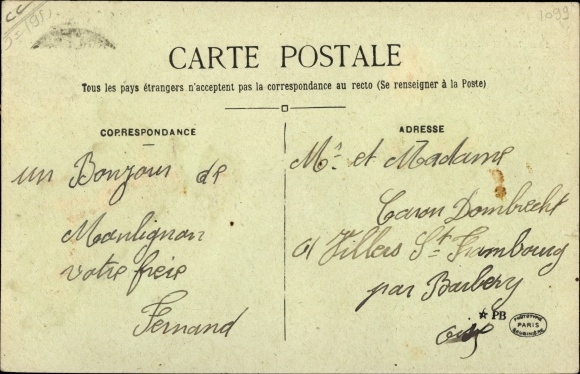 1099
CARTE POSTALE
Tous les pays étrangers n'acceptent pas la correspondance au recto (Se renseigner à la Poste)
CORRESPONDANCE
un Bonjour de
Manlignon
votre frère
Fernand
ADRESSE
Mr et Madame
Caron Dombrecht
a Villers St Frambourg
par Barbery
Oise
★ PB
PHOTOTYPIE
PARIS